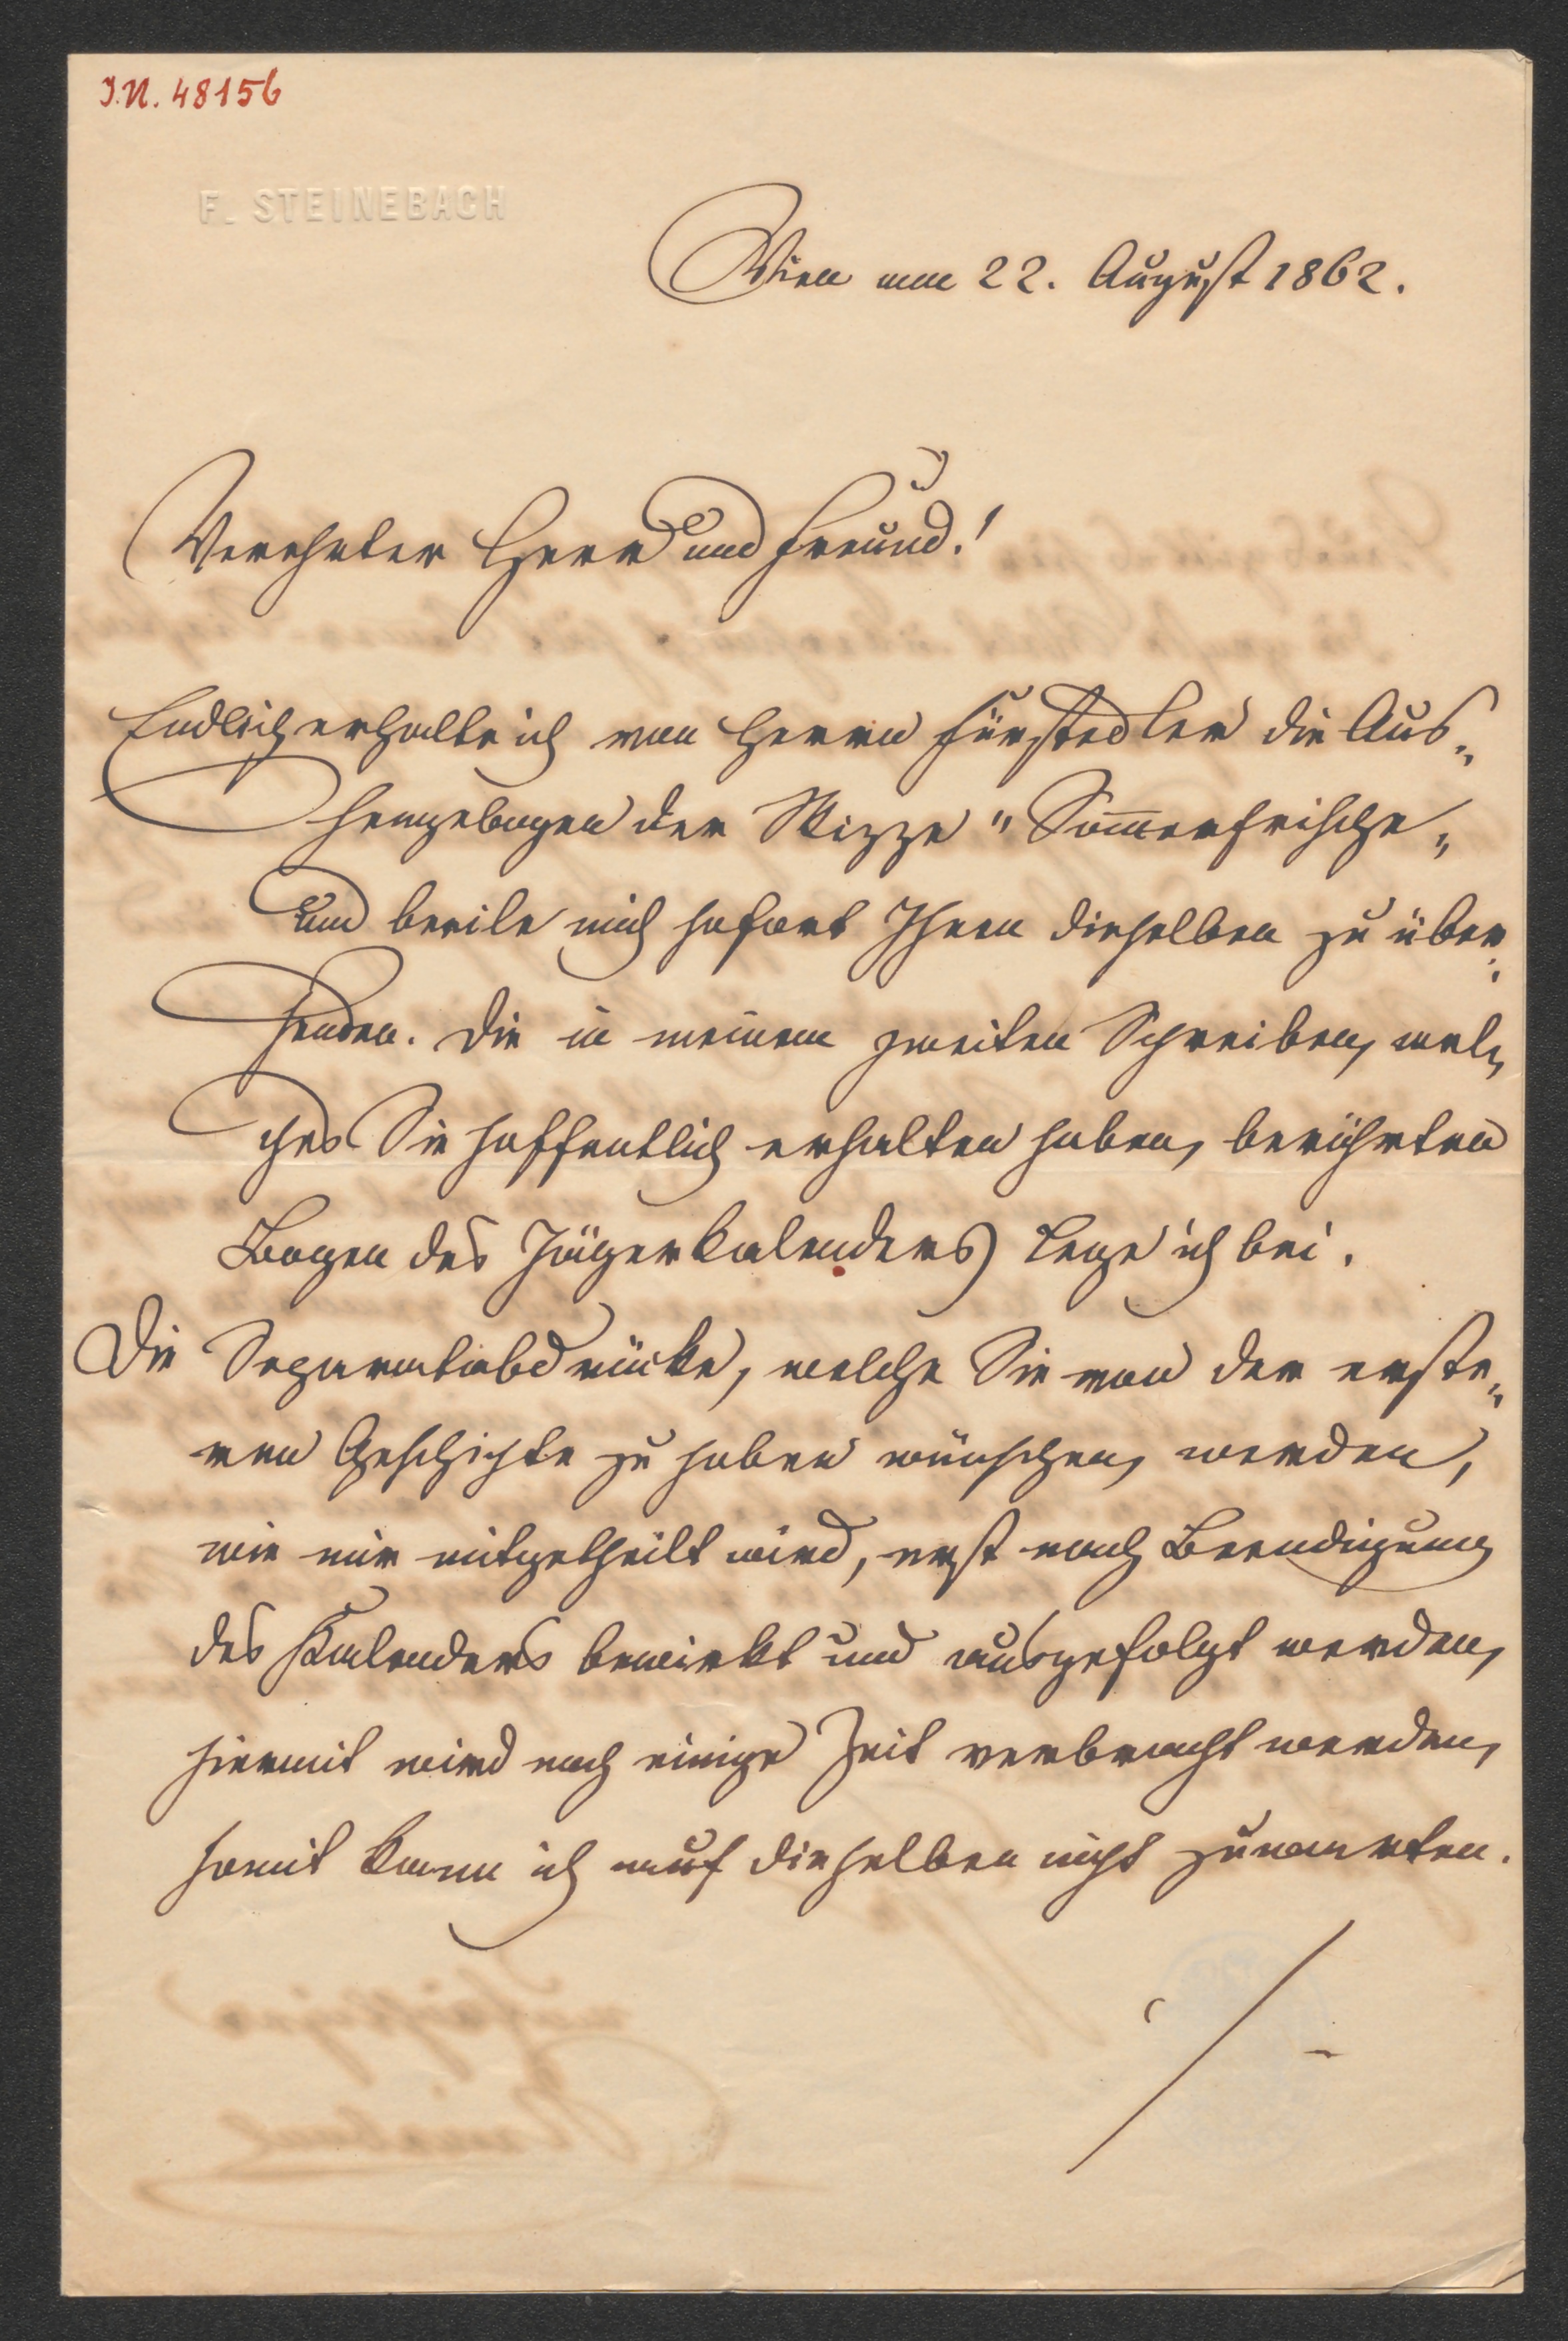 I.N. 48156
F. STEINEBACH
Wien am 22. August 1862.
Verehrter Herr und Freund!
Endlich erhalte ich von Herrn Fürstedler die Aus„
hengebogen der Skizze "Som̅erfrische„
und beeile mich sofort Ihnen dieselben zu über„
senden. Die in meinem zweiten Schreiben, wel„
ches Sie hoffentlich erhalten haben, berührten
Bogen des Jägerkalenders lege ich bei.
Die Separatabdrücke, welche Sie von der erste„
ren Geschichte zu haben wünschen, werden,
wie mir mitgetheilt wird, erst nach Beendigung
des Kalenders bewirkt und ausgefolgt werden,
hiermit wird noch einige Zeit verbracht werden,
somit kann ich auf dieselben nicht zuwarten.